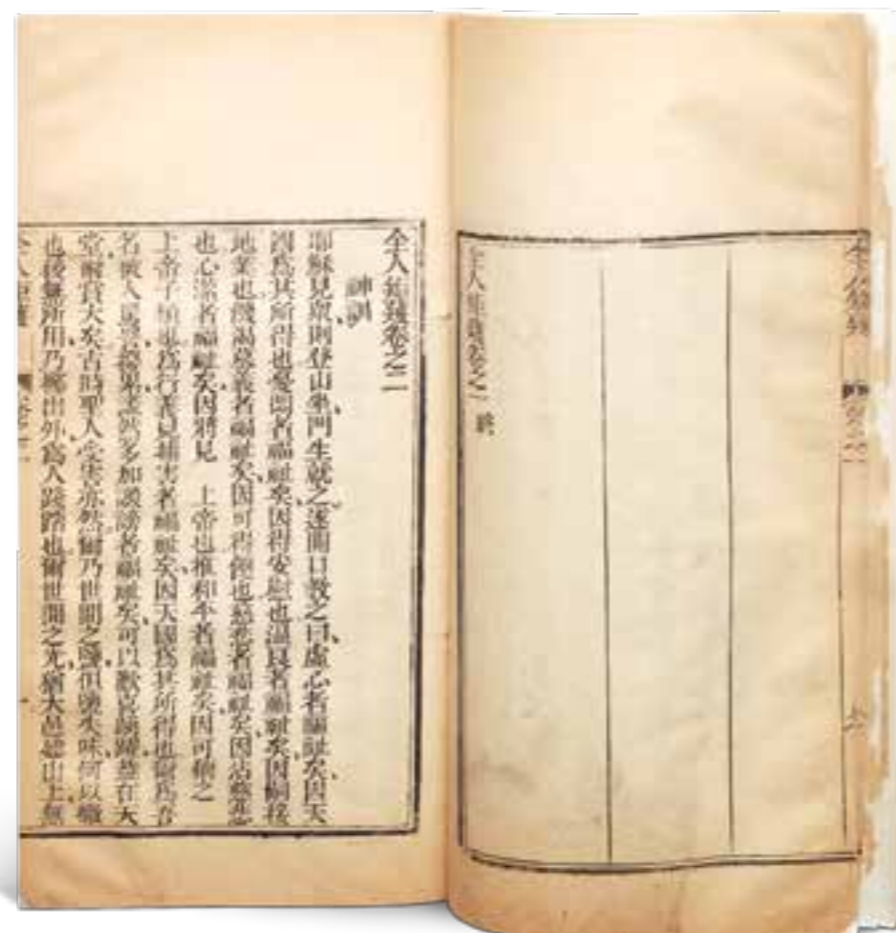 全人矩矱 卷之一
全人矩矱卷之一 終
全人矩矱卷之二
神訓
耶穌見眾則登山坐、門生就之、遂開口教之曰、虛心者福祉矣、因天
國爲其所得也、憂悶者福祉矣、因得安慰也、溫良者福祉矣、因嗣接
地業也、饑渴慕義者福祉矣、因可得飽也、慈悲者福祉矣、因沾慈悲
也、心潔者福祉矣、因將見 上帝也、推和平者福祉矣、因可稱之
上帝子類也、爲行義見捕害者福祉矣、因天國爲其所得也、爾爲吾
名被人罵詈擾累、然多加譭謗者福祉矣、可以歡喜踴躍、蓋在天
堂爾賞大矣、古時聖人受害亦然、爾乃世間之鹽、但鹽失味、何以鹹
也、後無所用、乃擲出外、爲人踐踏也、爾世間之光、猶大邑建山上、無
全人矩矱 卷之二